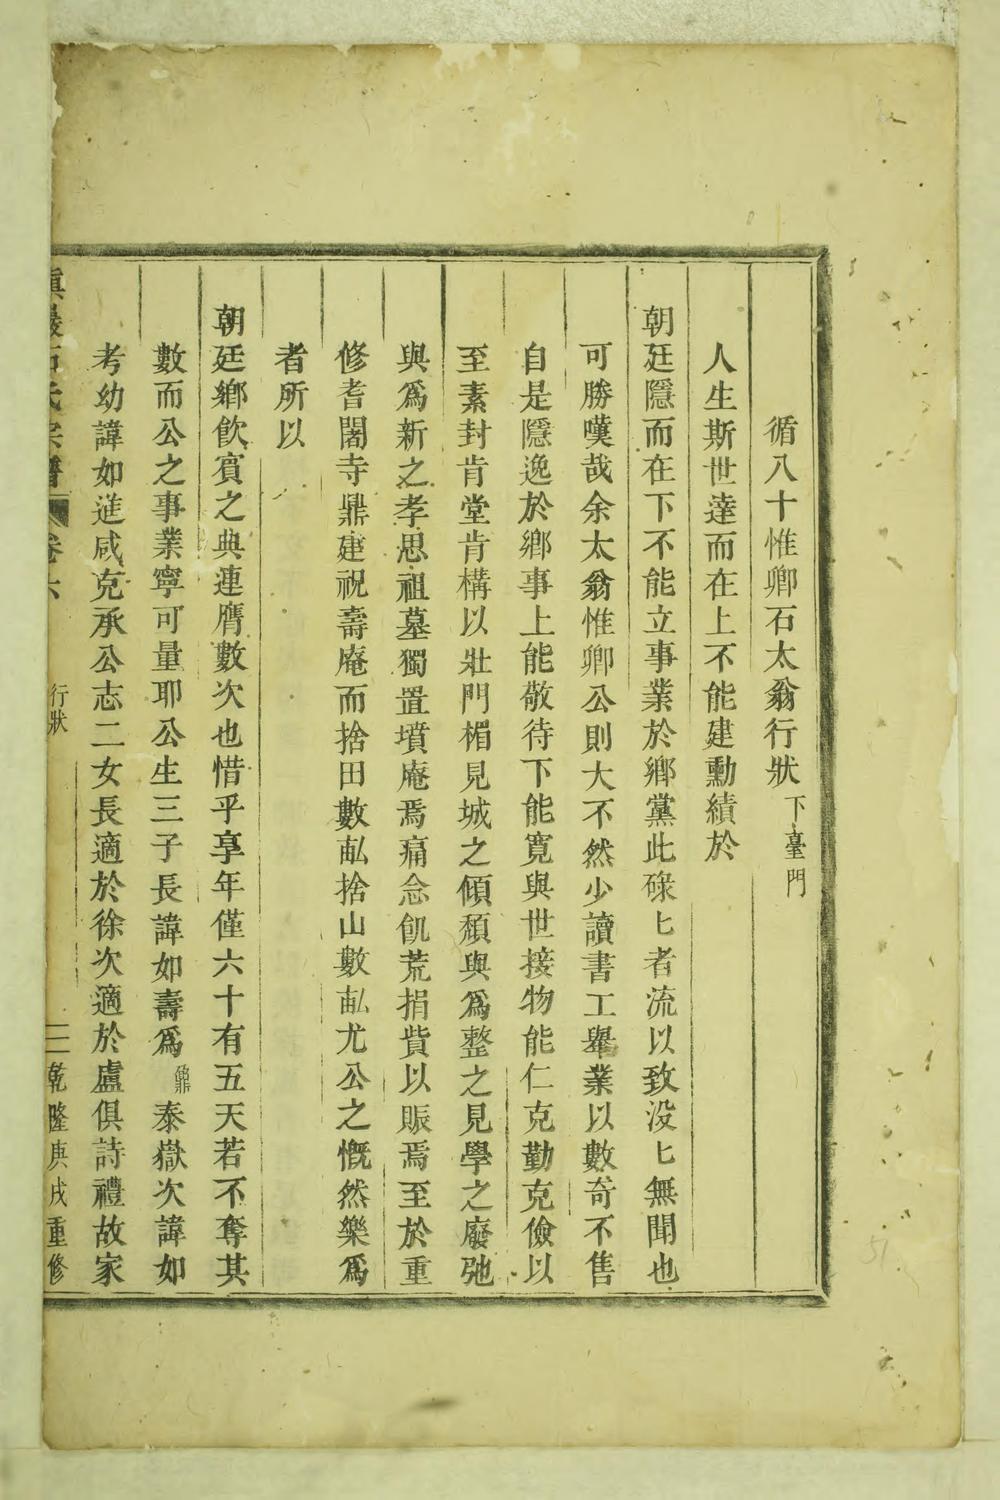 循八十惟卿石太翁行狀下臺門
人生斯世達而在上不能建勳績於
朝廷隱而在下不能立事業於鄉黨此碌匕者流以致没匕無聞也
可勝嘆哉余太翁惟卿公則大不然少讀書工舉業以數奇不售
自是隱逸於鄉事上能敬待下能寬與世接物能仁克勤克儉以
至素封肯堂肯構以壯門楣見城之傾頽與爲整之見學之廢弛
與爲新之孝思祖墓獨置墳庵焉痛念飢荒捐貲以賑焉至於重
修耆闍寺鼎建祝壽庵而捨田數畝捨山數畝尤公之慨然樂爲
者所以
朝廷鄉飲賓之典連膺數次也惜乎享年僅六十有五天若不奪其
數而公之事業寧可量耶公生三子長諱如壽爲泰嶽次諱如
考幼諱如進咸克承公志二女長適於徐次適於盧俱詩禮故家
石氏宗譜 卷六 行狀 二 乾隆庚戌重修